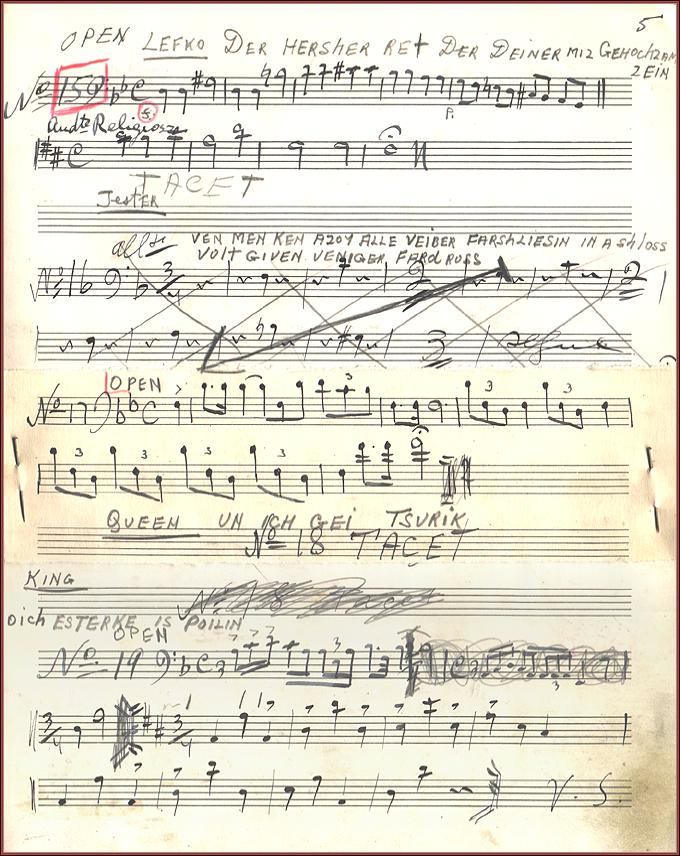 5
OPEN LEFKO DER HERSHER RET DER DEINER MIZ GEHOCHZAM
ZEIN
No 15
S.
P.
Andte Religioso
TACET
JESTER
VEN MEN KEN AZOY ALLE VEIBER FARSHLIESIN IN A Shloss
VOLT GIVEN VENIGER FARDROSS
No 3/4 2 2
3
OPEN
No 17 C 3 3 3
3 3 3 3
QUEEN UN ICH GEI TSURIK
No 18 TACET
KING
oich ESTERKE IS POILIN
OPEN
No 19 C 3 3 C 3
3/4 3/4
V. S.